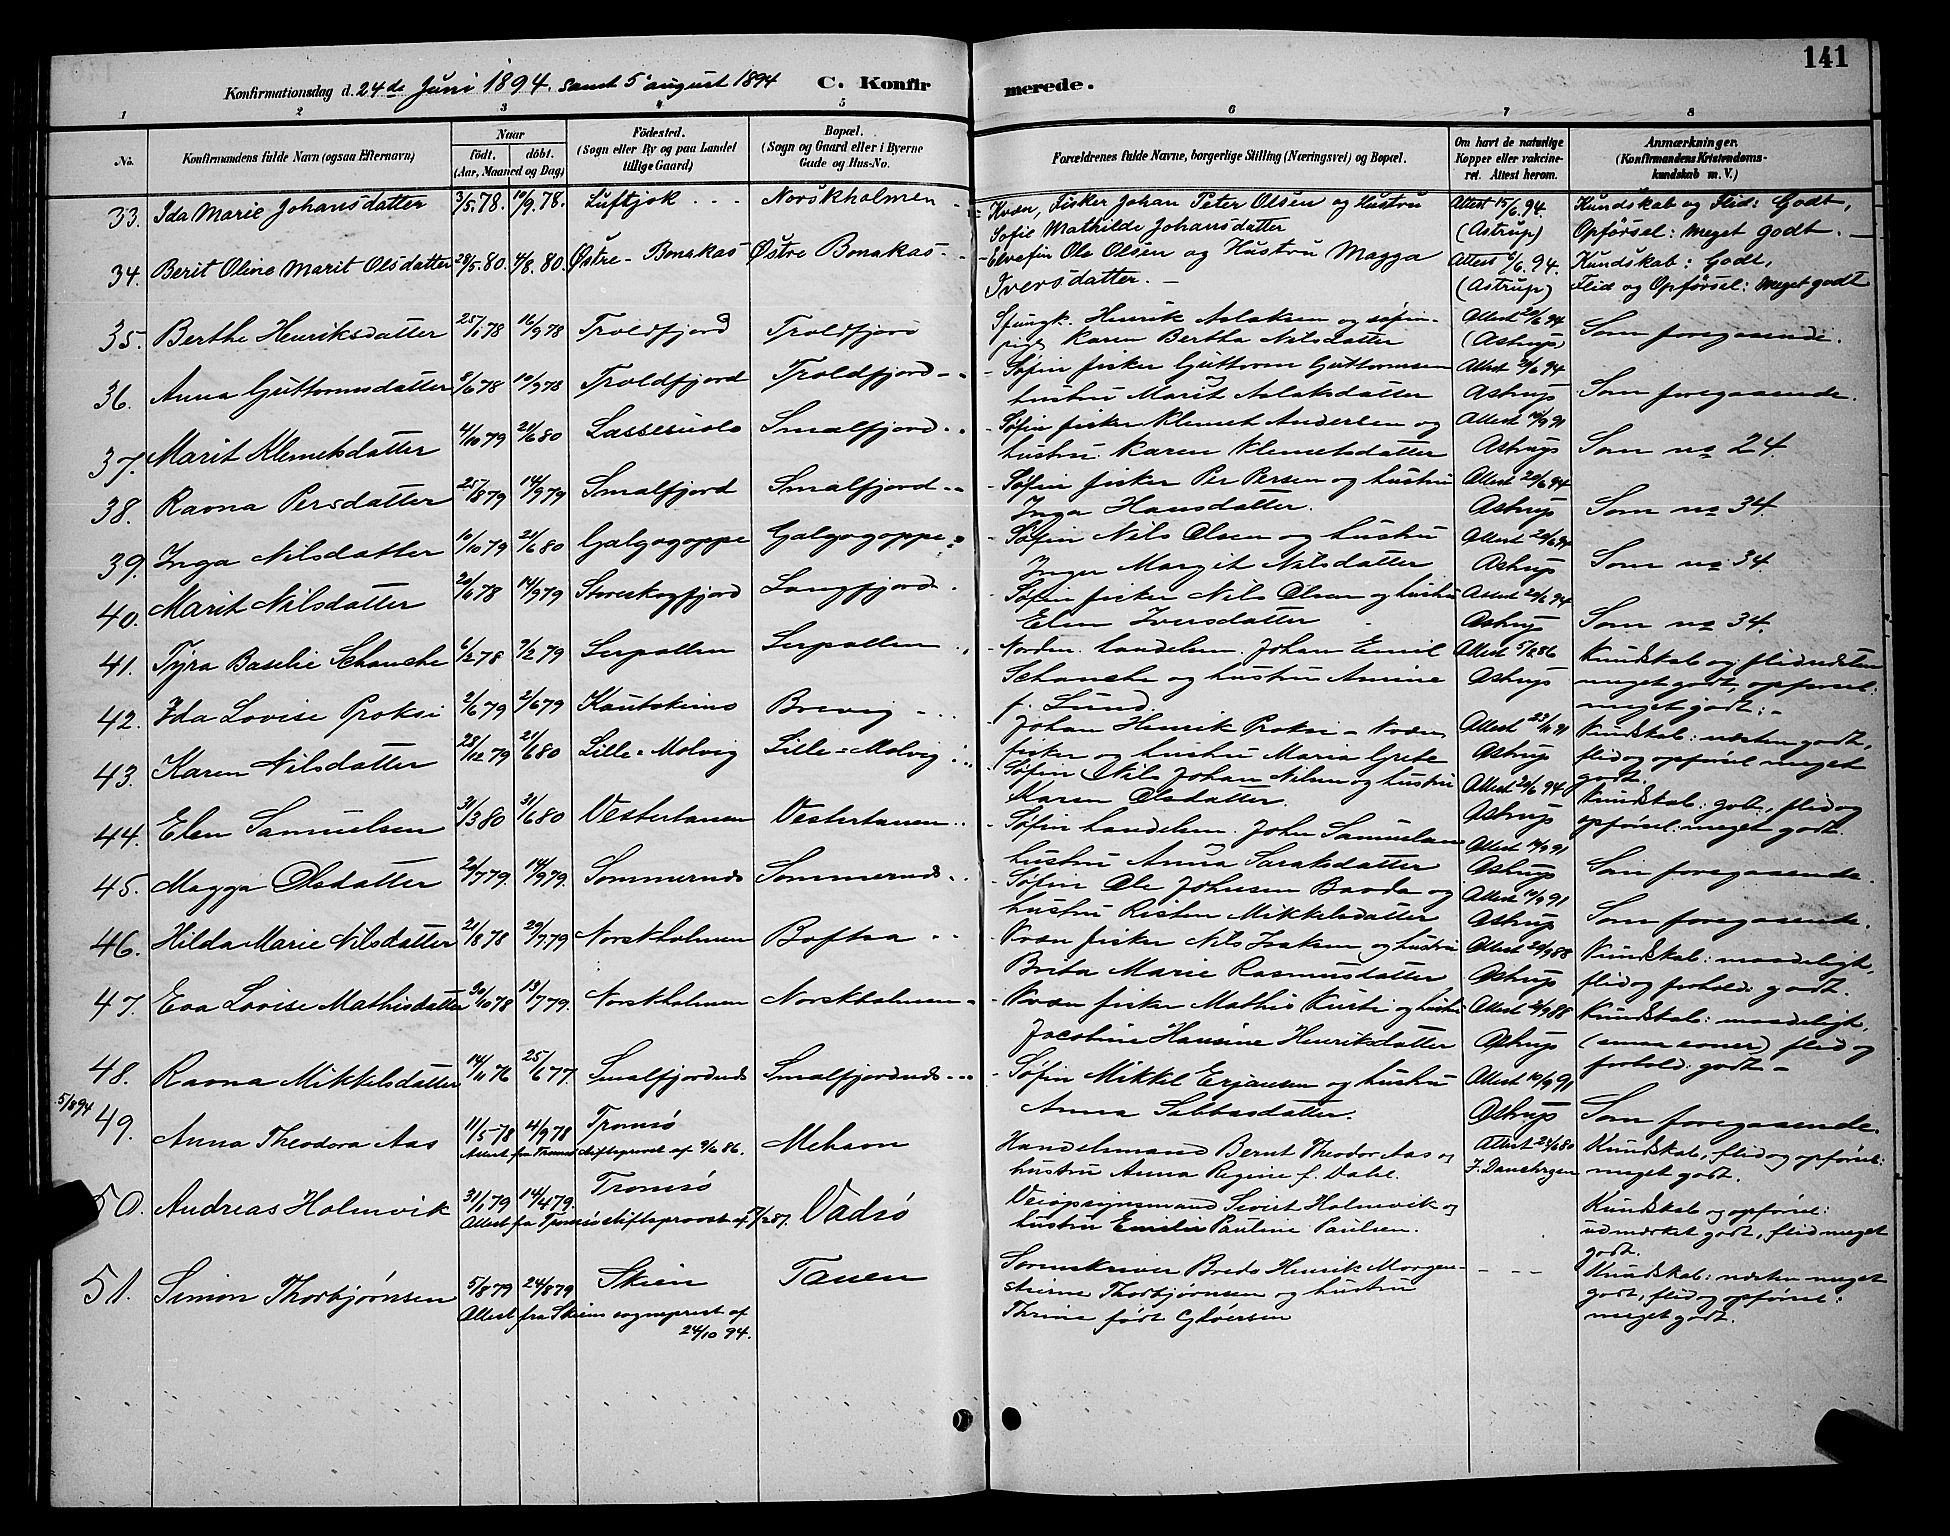 141
Konfirmationsdag d. 24de Juni 1894. samt 5' august 1894 C. Konfirmerede.
1 2 3 4 5 6 7 8
No. Konfirmandens fulde Navn (ogsaa Efternavn) Naar födt, döbt. (Aar, Maaned og Dag) Födested. (Sogn eller By og paa Landet tillige Gaard) Bopæl. (Sogn og Gaard eller i Byerne Gade og Hus-No. Forældrenes fulde Navne, borgerlige Stilling (Næringsvei) og Bopæl. Om havt de naturlige Kopper eller vakcineret. Attest herom. Anmærkninger. (Konfirmandens Kristendomskundskab m. V.)
33. Ida Marie Johansdatter 3/5.78. 10/9.78. Luftjok - - - Norskholmen - Kvæn, Fisker Johan Peter Olsen og Hustru Attest 15/6.94. Kundskab og Flid: Godt,
Sofie Mathilde Johansdatter (Astrup) Opførsel: Meget godt. -
34. Berit Oline Marit Olsdatter 28/5.80. 4/8.80. Østre - Bonakas Østre Bonakas - - Elvefin Ole Olsen og Hustru Magga Attest 6/6.94. Kundskab: Godt,
Iversdatter. - (Astrup) Flid og Opførsel: Meget godt
35. Berthe Henriksdatter 25/1 78 16/9 78 Troldfjord Troldfjord Henrik Aslaksen og søfin- Attest 20/6 94 Som foregaaende.
pige Karen Bertha Nilsdatter (Astrup)
36. Anna Guttormsdatter 8/6 78 10/9 78 Troldfjord Troldfjord - - - Søfin fisker Guttorm Guttormsen Attest 21/6 94 Som foregaaende.
hustru Marit Aslaksdatter Astrup
37. Marit Klemetsdatter 4/10 79 21/6 80 Smalfjord - - - Søfin fisker Klemet Andersen og Attest 10/9 91 Som no 24.
hustru Karen Klemetsdatter Astrup
38. Ravna Persdatter 25/8 79 14/9 79 Smalfjord Smalfjord - - - Søfin fisker Per Persen og hustru Attest 20/6 94 Som no 34.
Inga Hansdatter. Astrup
39. Inga Nilsdatter 10/10 79 21/6 80 Galgogoppe Galgogoppe - Søfin Nils Olsen og hustru Attest 20/6 94 Som no 34.
Inger Margit Nilsdatter Astrup
40. Marit Nilsdatter 20/6 78 14/9 79 Storeskogfjord Langfjord - Søfin fisker Nils Olsen og hustru Attest 20/6 94 Som no 34.
Elen Iversdatter Astrup
41. Tyra Basilie Schanche 6/2 78 2/2 79 Lerpollen Lerpollen - - - Nordm. handelsm. Johan Emil Attest 5/6 86 Kundskab og flid næsten
Schanche og hustru Amine Astrup meget godt, opførsel:
f. Lund. meget godt: -
42. Ida Lovise Proksi 2/6 79 2/6 79 Kautokeino Brevig - - - Johan Henrik Proksi - Kvæn Attest Kundskab: næsten godt,
fisker og hustru Maria Grete Astrup flid og opførsel meget godt.
43. Karen Nilsdatter 28/12 79 21/6 80 Lille = Molvig Lille = Molvig - Søfin Nils Johan Nilsen og hustru Attest 20/6 94 Kundskab: godt, flid og
Karen Olsdatter. Astrup opførsel: meget godt.
44. Elen Samuelsen 31/3 80 31/6 80 Vestertanen Vestertanen - - - Søfin handelsm. John Samuelsen Attest 10/9 91 Som foregaaende.
hustru Anna Saraksdatter Astrup
45. Magga Olsdatter 20/7 79. 14/9 79. Sommernæs Sommernæs - - Søfin Ole Johnsen Baada og Attest 10/9 91 Som foregaaende.
hustru Risten Mikkelsdatter Astrup
46. Hilda Marie Nilsdatter 21/8 78 20/7 79 Norskholmen Boftsa - - - Kvæn fisker Nils Isaksen og hustru Attest 20/9 88 Kundskab: maadeligt,
Brita Marie Rasmusdatter Astrup flid og forhold: godt.
47. Eva Lovise Mathisdatter 30/10 78 13/7 79. Norskholmen Norskholmen - - Kvæn fisker Mathis Kurti og hustru Attest Kundskab: maadeligt,
Jacobine Hansine Henriksdatter Astrup (smaa evner) flid og
forhold: godt -
48. Ravna Mikkelsdatter 14/11 76 25/6 77. Smalfjordnæs Smalfjordnæs - - - Søfin Mikkel Erjansen og hustru Attest 10/9 91 Som foregaaende.
Anna Sabbasdatter. Astrup
5/8 94
49. Anna Theodora Aas 11/5 78 4/9 78 Tromsö Mehavn Handelsmand Bernt Theodor Aas og Attest 28/6 80 Kundskab, flid og opførsel:
Attest fra Tromsø stiftsprovst af 9/6 86. hustru Anna Regine f. Dahl. meget godt.
50. Andreas Holmvik 31/1 79 14/4 79. Tromsö Vadsö Veiopsynsmand Sivert Holmvik og Kundskab og opførsel:
Attest fra Tromsø stiftsprovst af hustru Emilie Pauline Paulsen. udmærket godt, flid meget godt.
51. Simon Thorbjørnsen 5/8 79 24/8 79 Skien Tanen Sorenskriver Bredo Henrik Morgen- - - - - Kundskab: næsten meget
Attest fra Skiens sogneprest af stierne Thorbjørnsen og hustru godt, flid og opførsel:
24/10 94. Thrine født Gløersen meget godt.